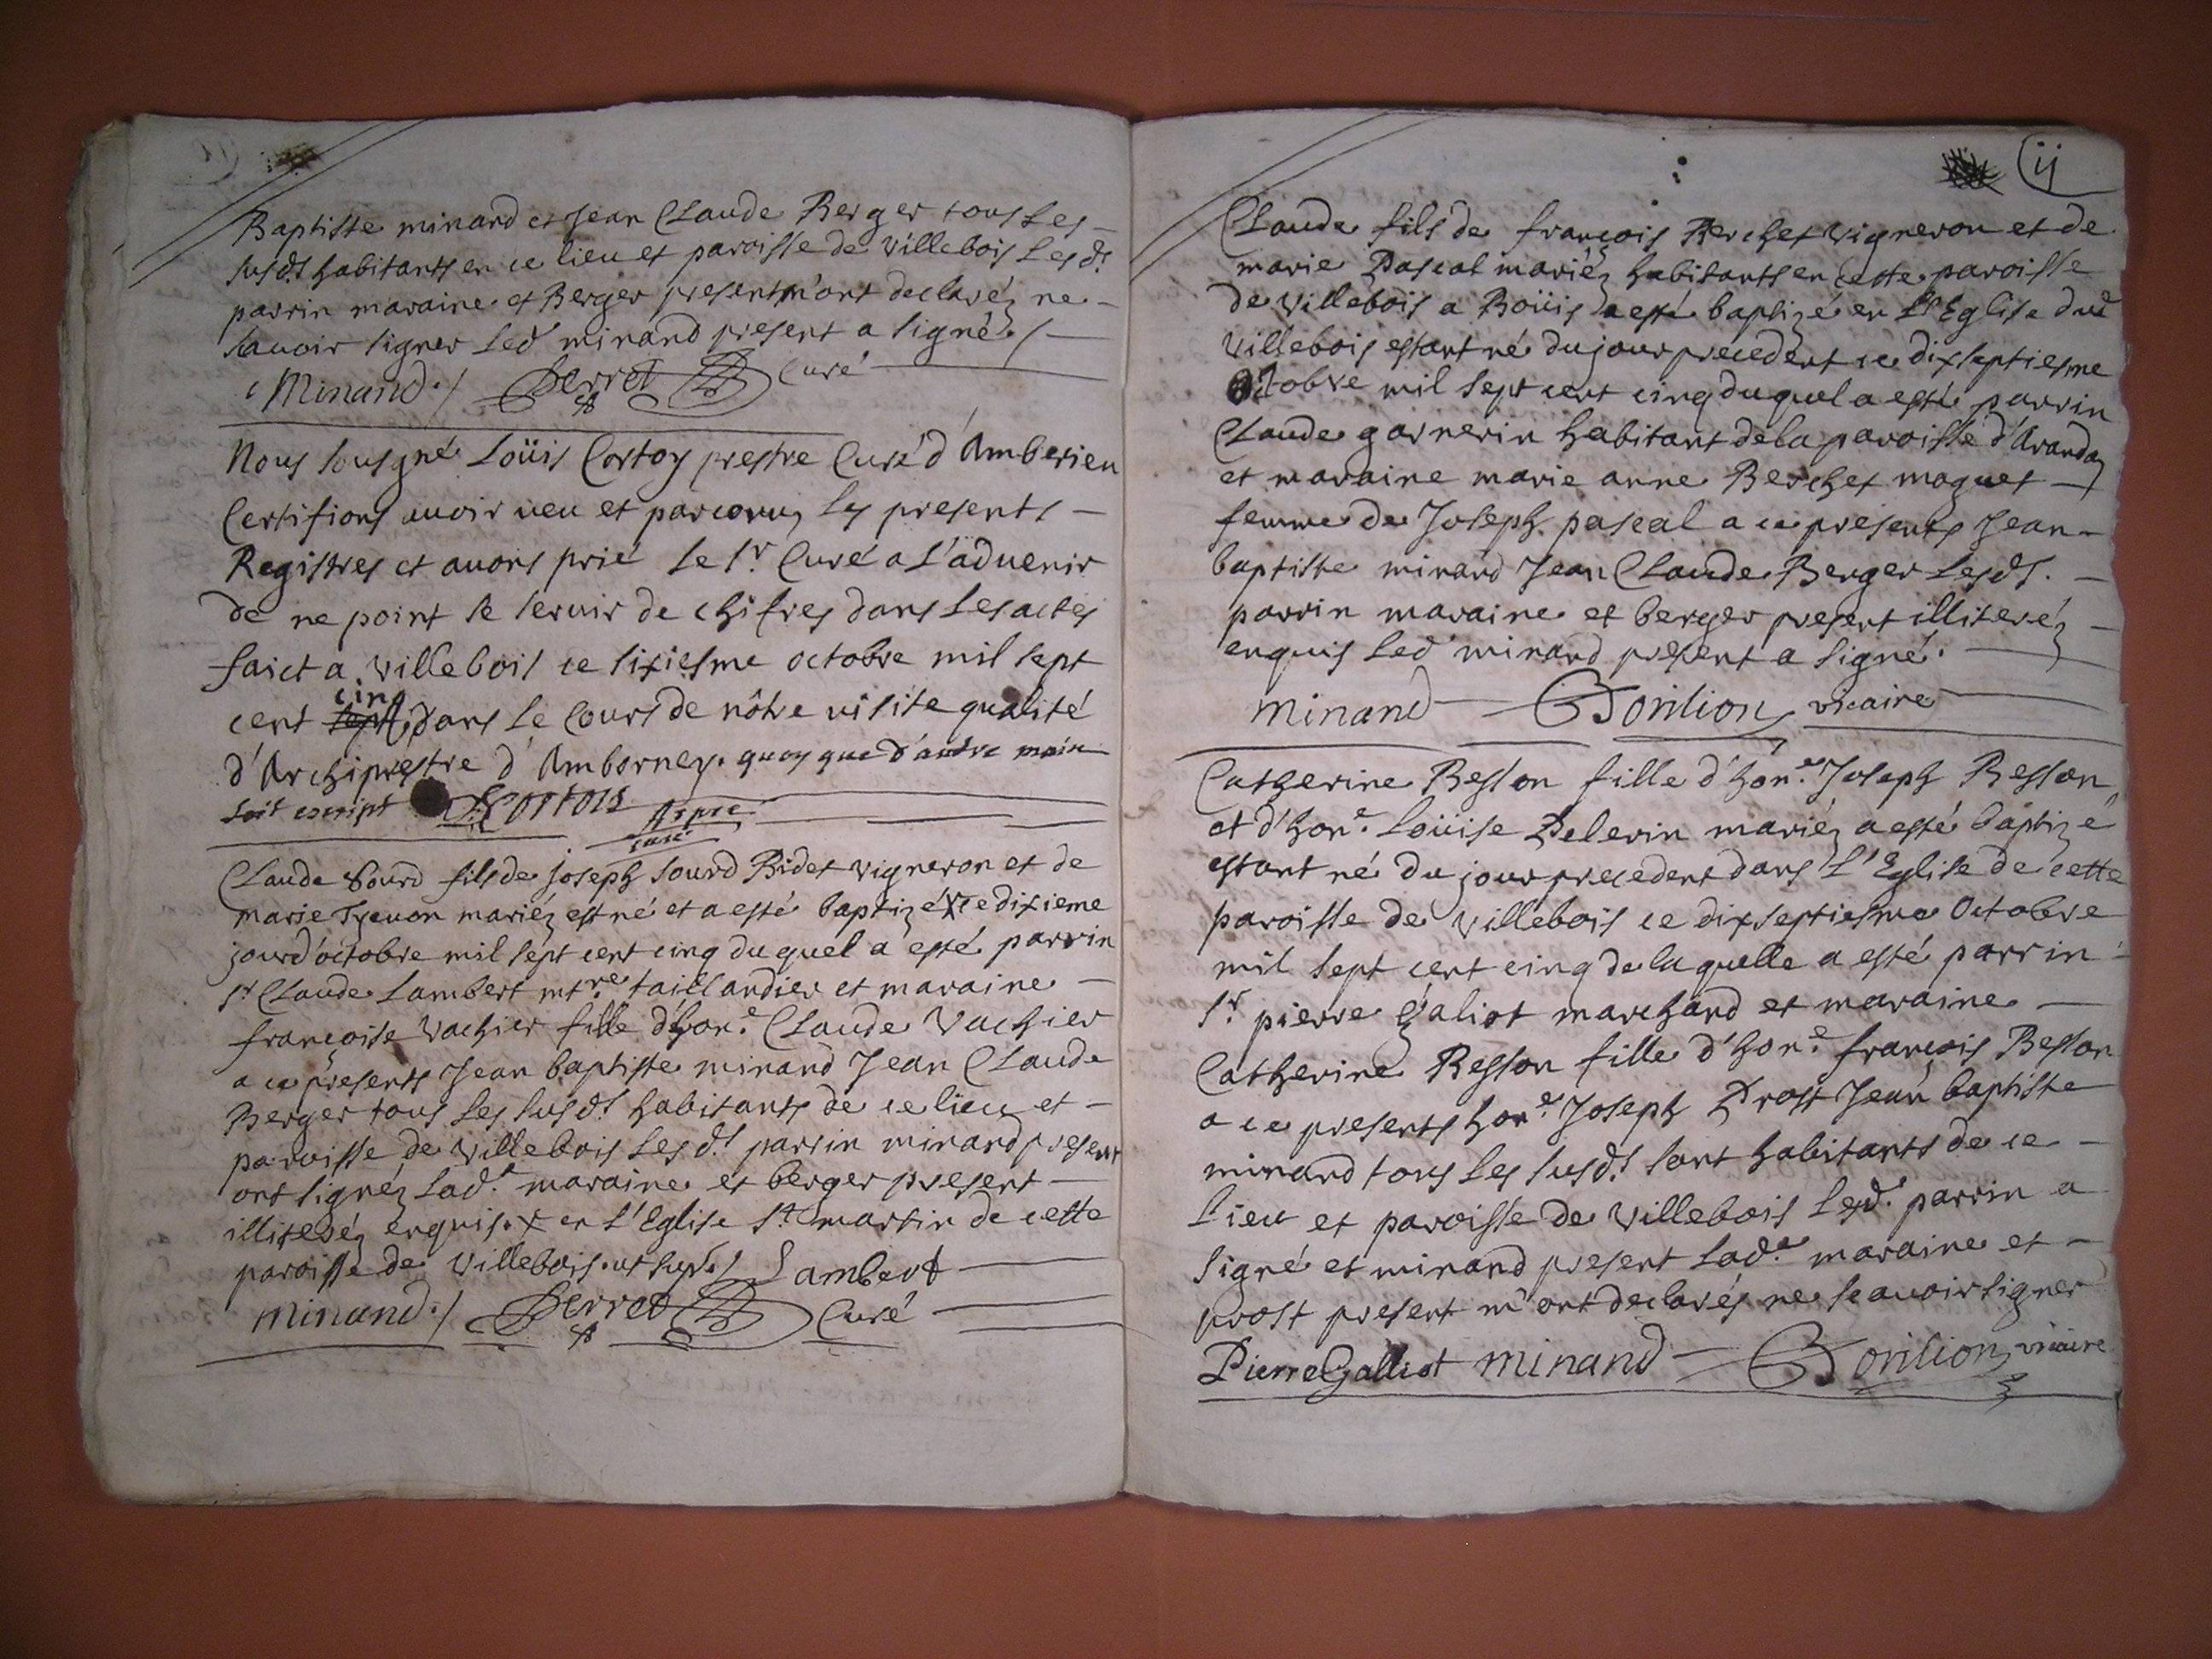 Baptiste minand et Jean Claude Berger tous Les
susd.ts habitants en ce lieu et paroisse de villebois Lesd.ts
parrin maraine et Berger presents m'ont declaréz ne
scauoir signer Led minand present a signé ./
Minand ./ Perret Curé
Nous sousigné Loüis Cortoy prestre Curé d'Amberieu
Certifions auoir ueu et parcouru les presents
Registres et auons prié le s.r Curé a L'aduenir
de ne point se seruir de chifres dans les actes
faict a villebois ce sixiesme octobre mil sept
cent cinq dans le Cours de nôtre visite qualité
d'Archiprestre d'Amborney. quoy que d'autre main
soit escript Cortois Arpre curé
Claude Sourd fils de joseph sourd Bidet vigneron et de
marie Theuon mariéz est né et a esté baptizé X ce dixieme
jour d'octobre mil sept cent cinq duquel a esté parrin
s.r Claude Lambert mtre taillandier et maraine
francoise vachier fille d'hon.e Claude vachier
a ce presents Jean baptiste minand Jean Claude
Berger tous Les susd.ts habitants de ce lieu et
paroisse de villebois Lesd.ts parrin minand present
ont signéz Lad.e maraine et berger present
illiteréz enquis. X en l'Eglise s.t martin de cette
paroisse de villebois. ut sup. ./ Lambert
minand ./ Perret Curé
ij
Claude fils de francois Berchet vigneron et de
marie Pascal mariéz habitants en cette paroisse
de villebois a Boüis a esté baptizé en L'Eglise dud
villebois estant né du jour precedent ce dixseptiesme
Octobre mil sept cent cinq duquel a esté parrin
Claude garnerin habitant de la paroisse d'Arandaz
et maraine marie anne Berchet moguet
femme de Joseph pascal a ce presents Jean
baptiste minand Jean Claude Berger Lesd.ts
parrin maraine et berger present illiteréz
enquis Led minand present a signé.
minand Borilion vicaire
Catherine Besson fille d'hon.e Joseph Besson
et d'hon.e Loüise Pelerin mariéz a esté baptizé
estant né du jour precedent dans l'Eglise de cette
paroisse de villebois ce dixseptiesme Octobre
mil sept cent cinq de laquelle a esté parrin
s.r pierre Galiot marchand et maraine
Catherine Besson fille d'hon.e francois Besson
a ce presents hon.e Joseph Prost Jean baptiste
minand tous les susd.ts sont habitants de ce
Lieu et paroisse de villebois Led.t parrin a
signé et minand present Lad.e maraine et
prost present m'ont declaréz ne scauoir signer
Pierre Galliot minand Borilion vicaire